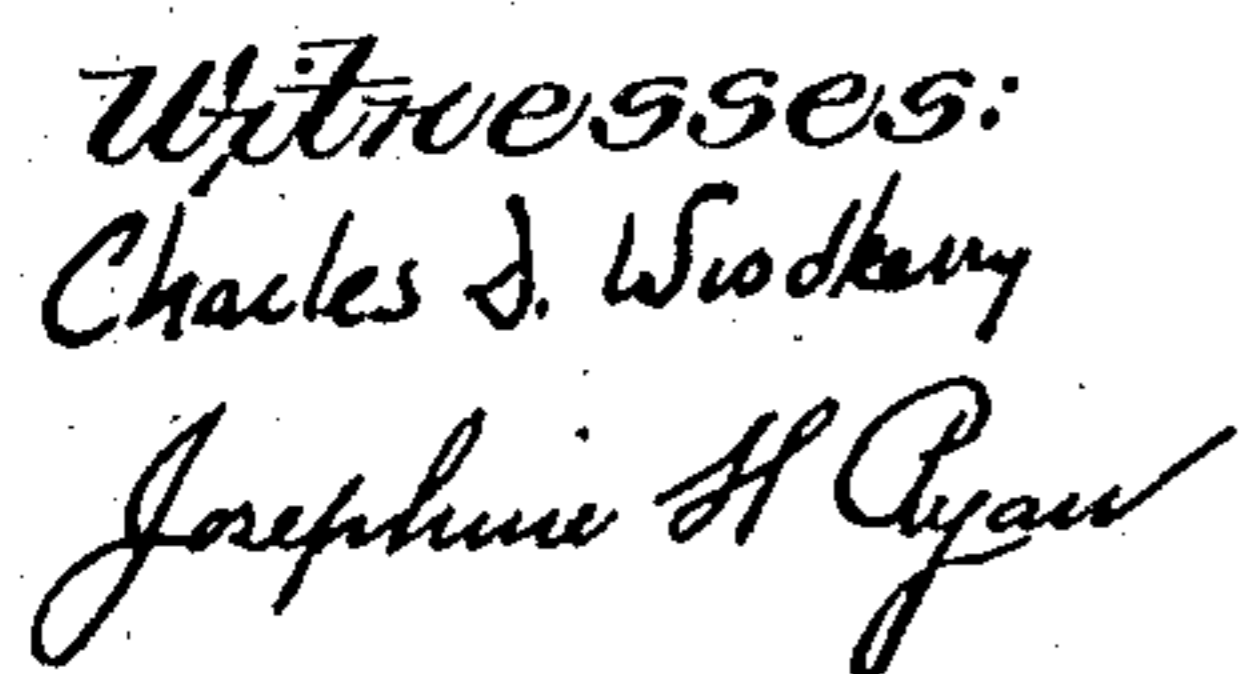 Witnesses:
Charles D. Woodberry
Josephine H Ryan